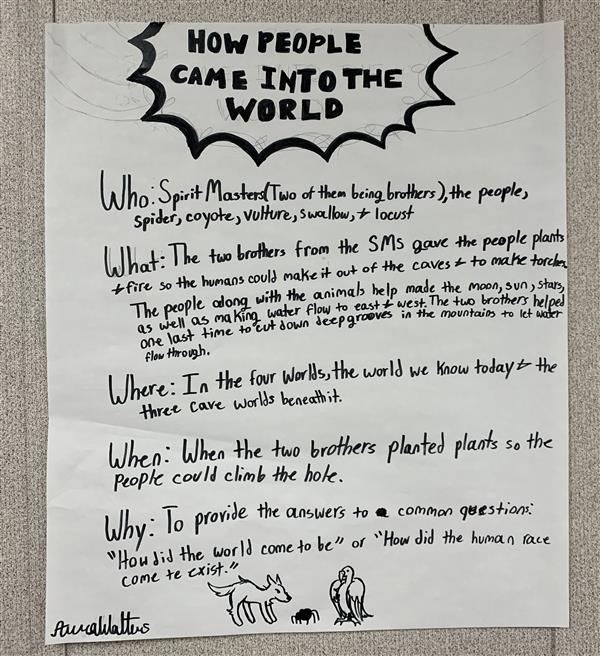 HOW PEOPLE
CAME INTO THE
WORLD
Who: Spirit Masters (Two of them being brothers), the people,
spider, coyote, vulture, swallow, + locust
What: The two brothers from the SMs gave the people plants
+ fire so the humans could make it out of the caves + to make torches
The people along with the animals help made the moon, sun, stars,
as well as making water flow to east + west. The two brothers helped
one last time to cut down deep grooves in the mountains to let water
flow through.
Where: In the four worlds, the world we know today + the
three cave worlds beneath it.
When: When the two brothers planted plants so the
People could climb the hole.
Why: To provide the answers to common questions:
"How did the world come to be" or "How did the human race
come to exist."